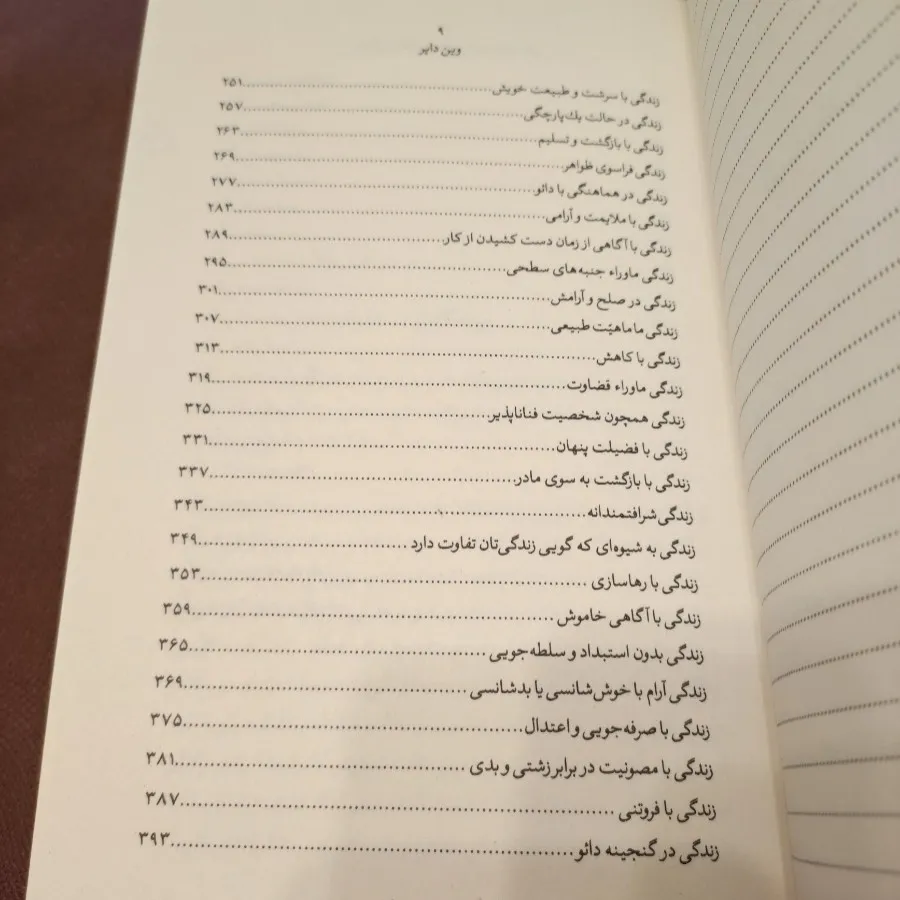 ۹
وین دایر
زندگی با سرشت و طبیعت خویش......۲۵۱
زندگی در حالت یك‌پارچگی......۲۵۷
زندگی با بازگشت و تسلیم......۲۶۳
زندگی فراسوی ظواهر......۲۶۹
زندگی در هماهنگی با دائو......۲۷۷
زندگی با ملایمت و آرامی......۲۸۳
زندگی با آگاهی از زمان دست کشیدن از کار......۲۸۹
زندگی ماوراء جنبه‌های سطحی......۲۹۵
زندگی در صلح و آرامش......۳۰۱
زندگی ما ماهیّت طبیعی......۳۰۷
زندگی با کاهش......۳۱۳
زندگی ماوراء قضاوت......۳۱۹
زندگی همچون شخصیت فناناپذیر......۳۲۵
زندگی با فضیلت پنهان......۳۳۱
زندگی با بازگشت به سوی مادر......۳۳۷
زندگی شرافتمندانه......۳۴۳
زندگی به شیوه‌ای که گویی زندگی‌تان تفاوت دارد......۳۴۹
زندگی با رهاسازی......۳۵۳
زندگی با آگاهی خاموش......۳۵۹
زندگی بدون استبداد و سلطه‌جویی......۳۶۵
زندگی آرام با خوش‌شانسی یا بدشانسی......۳۶۹
زندگی با صرفه‌جویی و اعتدال......۳۷۵
زندگی با مصونیت در برابر زشتی و بدی......۳۸۱
زندگی با فروتنی......۳۸۷
زندگی در گنجینه دائو......۳۹۳